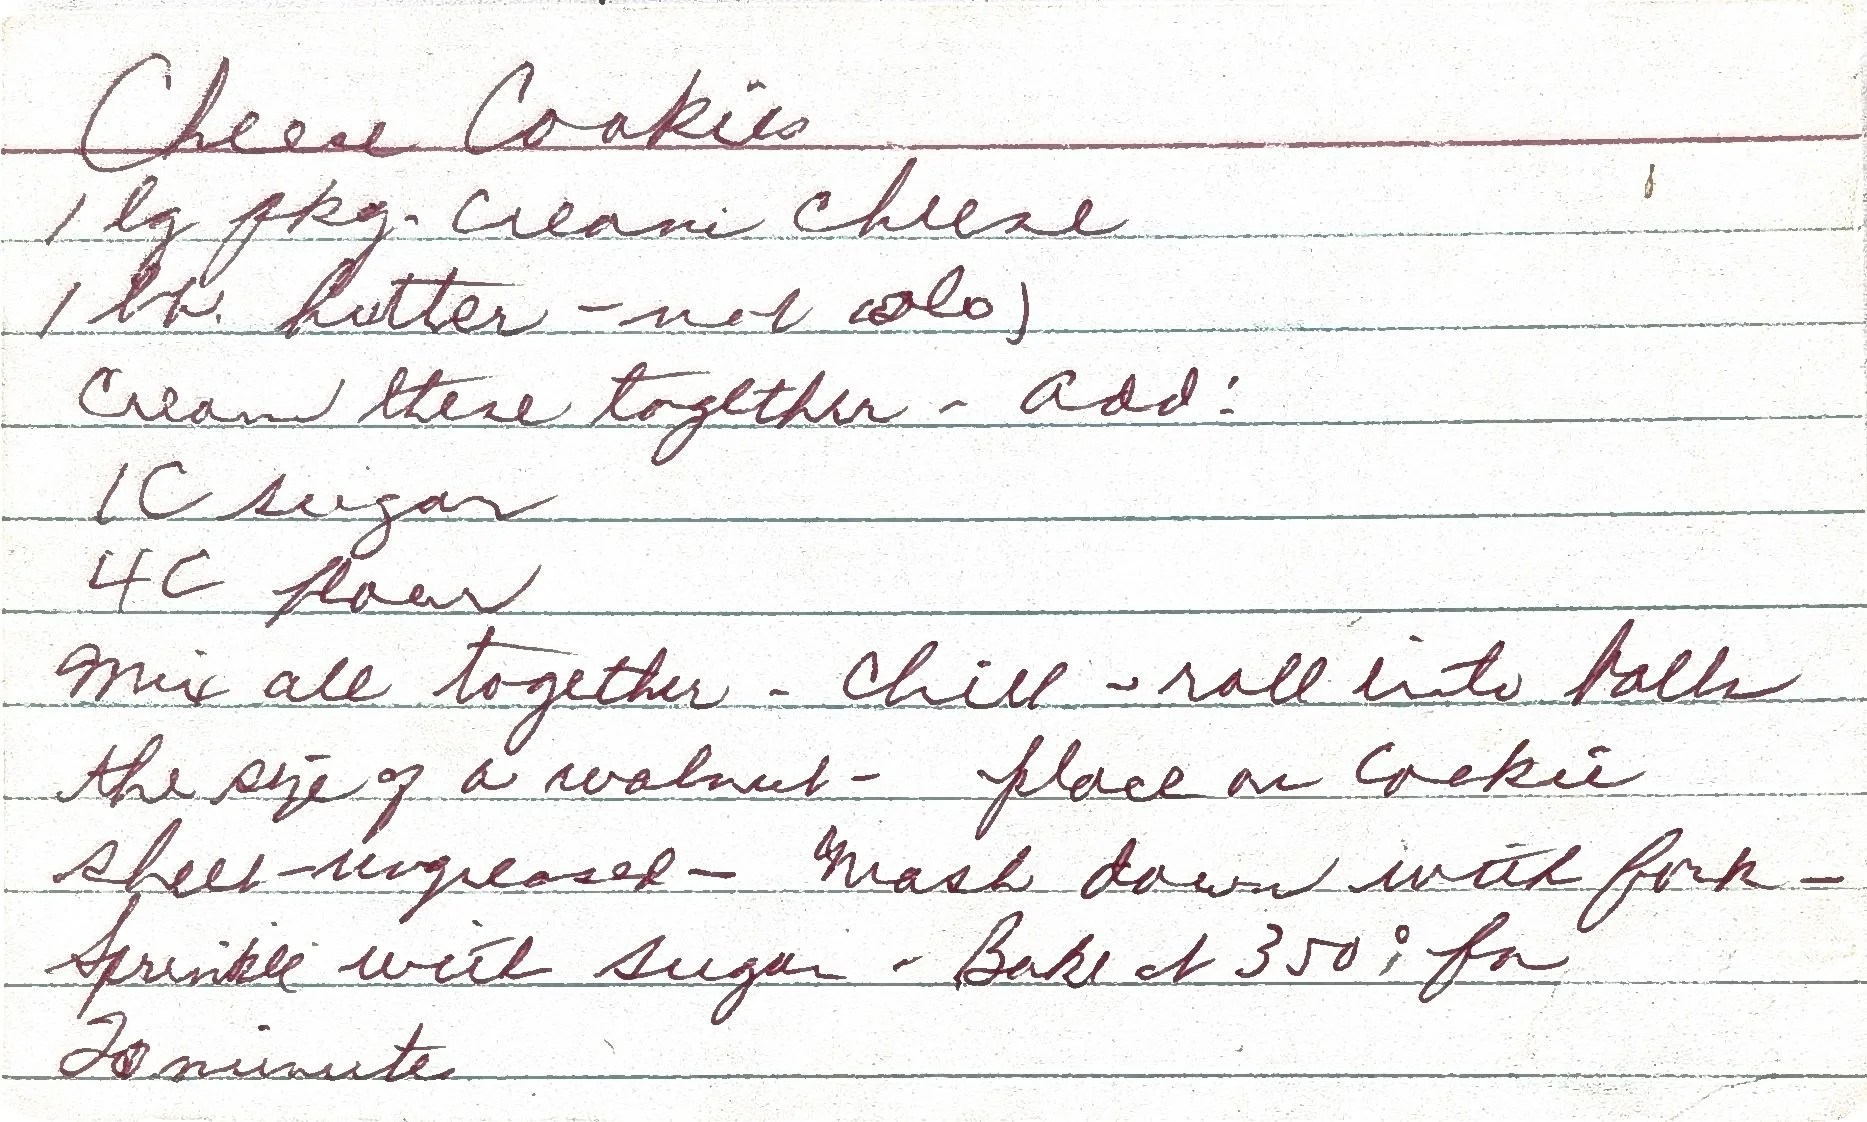 Cheese Cookies
1 lg pkg. Cream Cheese
1 lb. butter - not oleo)
Cream these together - add:
1C sugar
4C flour
Mix all together - Chill - roll into balls
the size of a walnut - place on Cookie
sheet - ungreased - Mash down with fork -
Sprinkle with sugar - Bake at 350° for
20 minutes